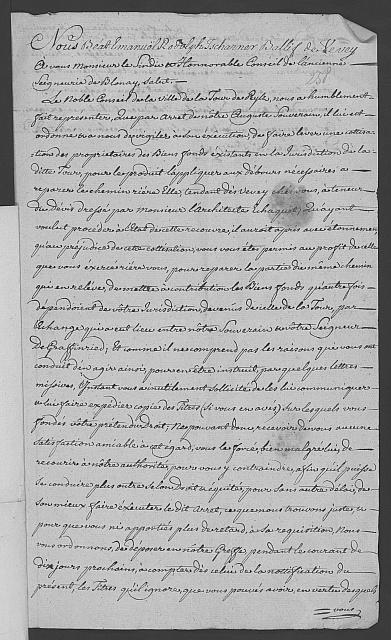 Nous Beat Emanuel Rodolph Tscharner Ballif de Vevey
A vous Monsieur le Sindic et Honnorable Conseil de l'ancienne
Seigneurie de Blonay salut.
Le Noble Conseil de la ville de la Tour de Peylz, nous a humblement
fait representer, Que par Arret de nôtre Auguste Souverain, il lui est
ordonné et a nous de vigiler à son execution, de faire lever une cotisa
tions des proprietaires des Biens fonds existants en la Jurisdiction de la
ditte Tour, pour le produit l'appliquer aux debours nécessaires a
reparer le chemin riére Elle, tendant dès Vevey chés vous, à teneur
du devis dressé par monsieur l'architecte Qu'ayant
voulut procéder à l'Etat de cette recouvre, il auroit apris avec étonnement
qu'au préjudice de cette cotisation, vous vous êtes permis au profit de celle
que vous exercé riére vous, pour reparer la partie du même chemin
qui en releve, de mettre à contribution les Biens fonds qu'autre fois
dépendoient de vôtre Jurisdiction, devenus de celle de la Tour, par
l'échange qui a eut lieu entre nôtre Souverain et vôtre Seigneur
De Graffenried; Et comme il ne comprend pas les raisons que vous ont
conduit d'en agir ainsi, pour en être instruit, par quelques lettres
missives, l'Instant vous a inutilement sollicité de les lui communiquer
et lui faire expédier copie des Titres (Si vous en avés) Sur lesquels vous
fondés vôtre prétendu droit, Ne pouvant donc recevoir de vous aucune
satisfaction amiable à cet égard, vous le forcés bien malgré lui, de
recourir à nôtre authorité, pour vous y contraindre, afin qu'il puisse
se conduire plus outre selon droit et équité, pour sans autre délai, de
son mieux faire éxécuter le dit Arret, ce que nous trouvons juste, et
pour que vous n'apportiés plus de retard, à sa requisition Nous
vous ordonnons, de déposer en nôtre Greffe, pendant le courant de
dix jours prochains, à compter dès celui de la notification du
présent, les Titres qu'il ignore, que vous pouvés avoir, en vertu desquels
vous